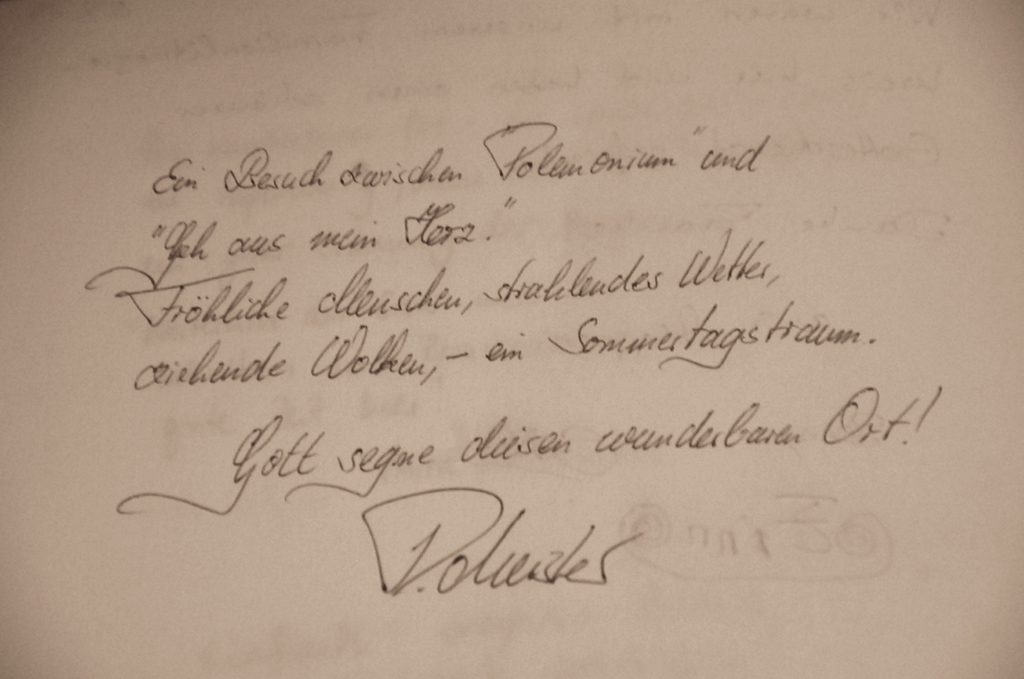 Ein Besuch zwischen "Polemonium" und
"Geh aus mein Herz".
Fröhliche Menschen, strahlendes Wetter,
ziehende Wolken, – ein Sommertagstraum.
Gott segne diesen wunderbaren Ort!